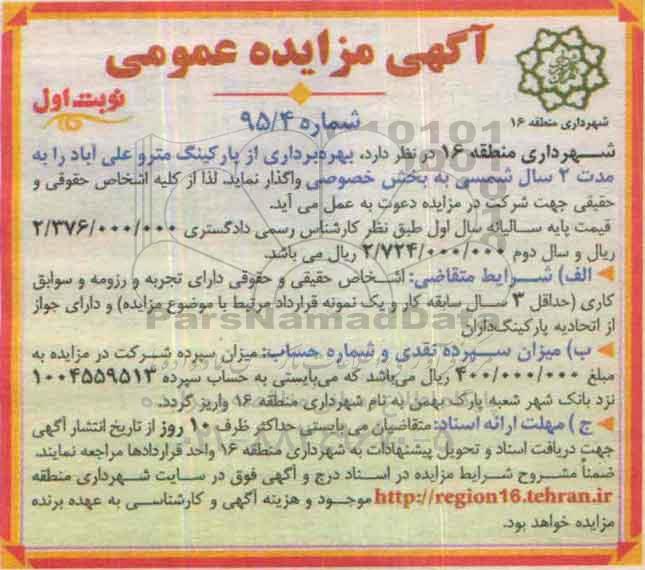 آگهی مزایده عمومی
نوبت اول
شماره ۹۵/۴
شهرداری منطقه ۱۶
شهرداری منطقه ۱۶ در نظر دارد، بهره‌برداری از پارکینگ مترو علی آباد را به
مدت ۲ سال شمسی به بخش خصوصی واگذار نماید. لذا از کلیه اشخاص حقوقی و
حقیقی جهت شرکت در مزایده دعوت به عمل می آید.
قیمت پایه سالیانه سال اول طبق نظر کارشناس رسمی دادگستری ۲/۳۷۶/۰۰۰/۰۰۰
ریال و سال دوم ۲/۷۲۴/۰۰۰/۰۰۰ ریال می باشد.
الف) شرایط متقاضی: اشخاص حقیقی و حقوقی دارای تجربه و رزومه و سوابق
کاری (حداقل ۳ سال سابقه کار و یک نمونه قرارداد مرتبط با موضوع مزایده) و دارای جواز
از اتحادیه پارکینگ‌داران
ب) میزان سپرده نقدی و شماره حساب: میزان سپرده شرکت در مزایده به
مبلغ ۴۰۰/۰۰۰/۰۰۰ ریال می‌باشد که می‌بایستی به حساب سپرده ۱۰۰۴۵۵۹۵۱۳
نزد بانک شهر شعبه پارک بهمن به نام شهرداری منطقه ۱۶ واریز گردد.
ج) مهلت ارائه اسناد: متقاضیان می بایستی حداکثر ظرف ۱۰ روز از تاریخ انتشار آگهی
جهت دریافت اسناد و تحویل پیشنهادات به شهرداری منطقه ۱۶ واحد قراردادها مراجعه نمایند.
ضمناً مشروح شرایط مزایده در اسناد درج و آگهی فوق در سایت شهرداری منطقه
http://region16.tehran.ir موجود و هزینه آگهی و کارشناسی به عهده برنده
مزایده خواهد بود.
ParsNamadData